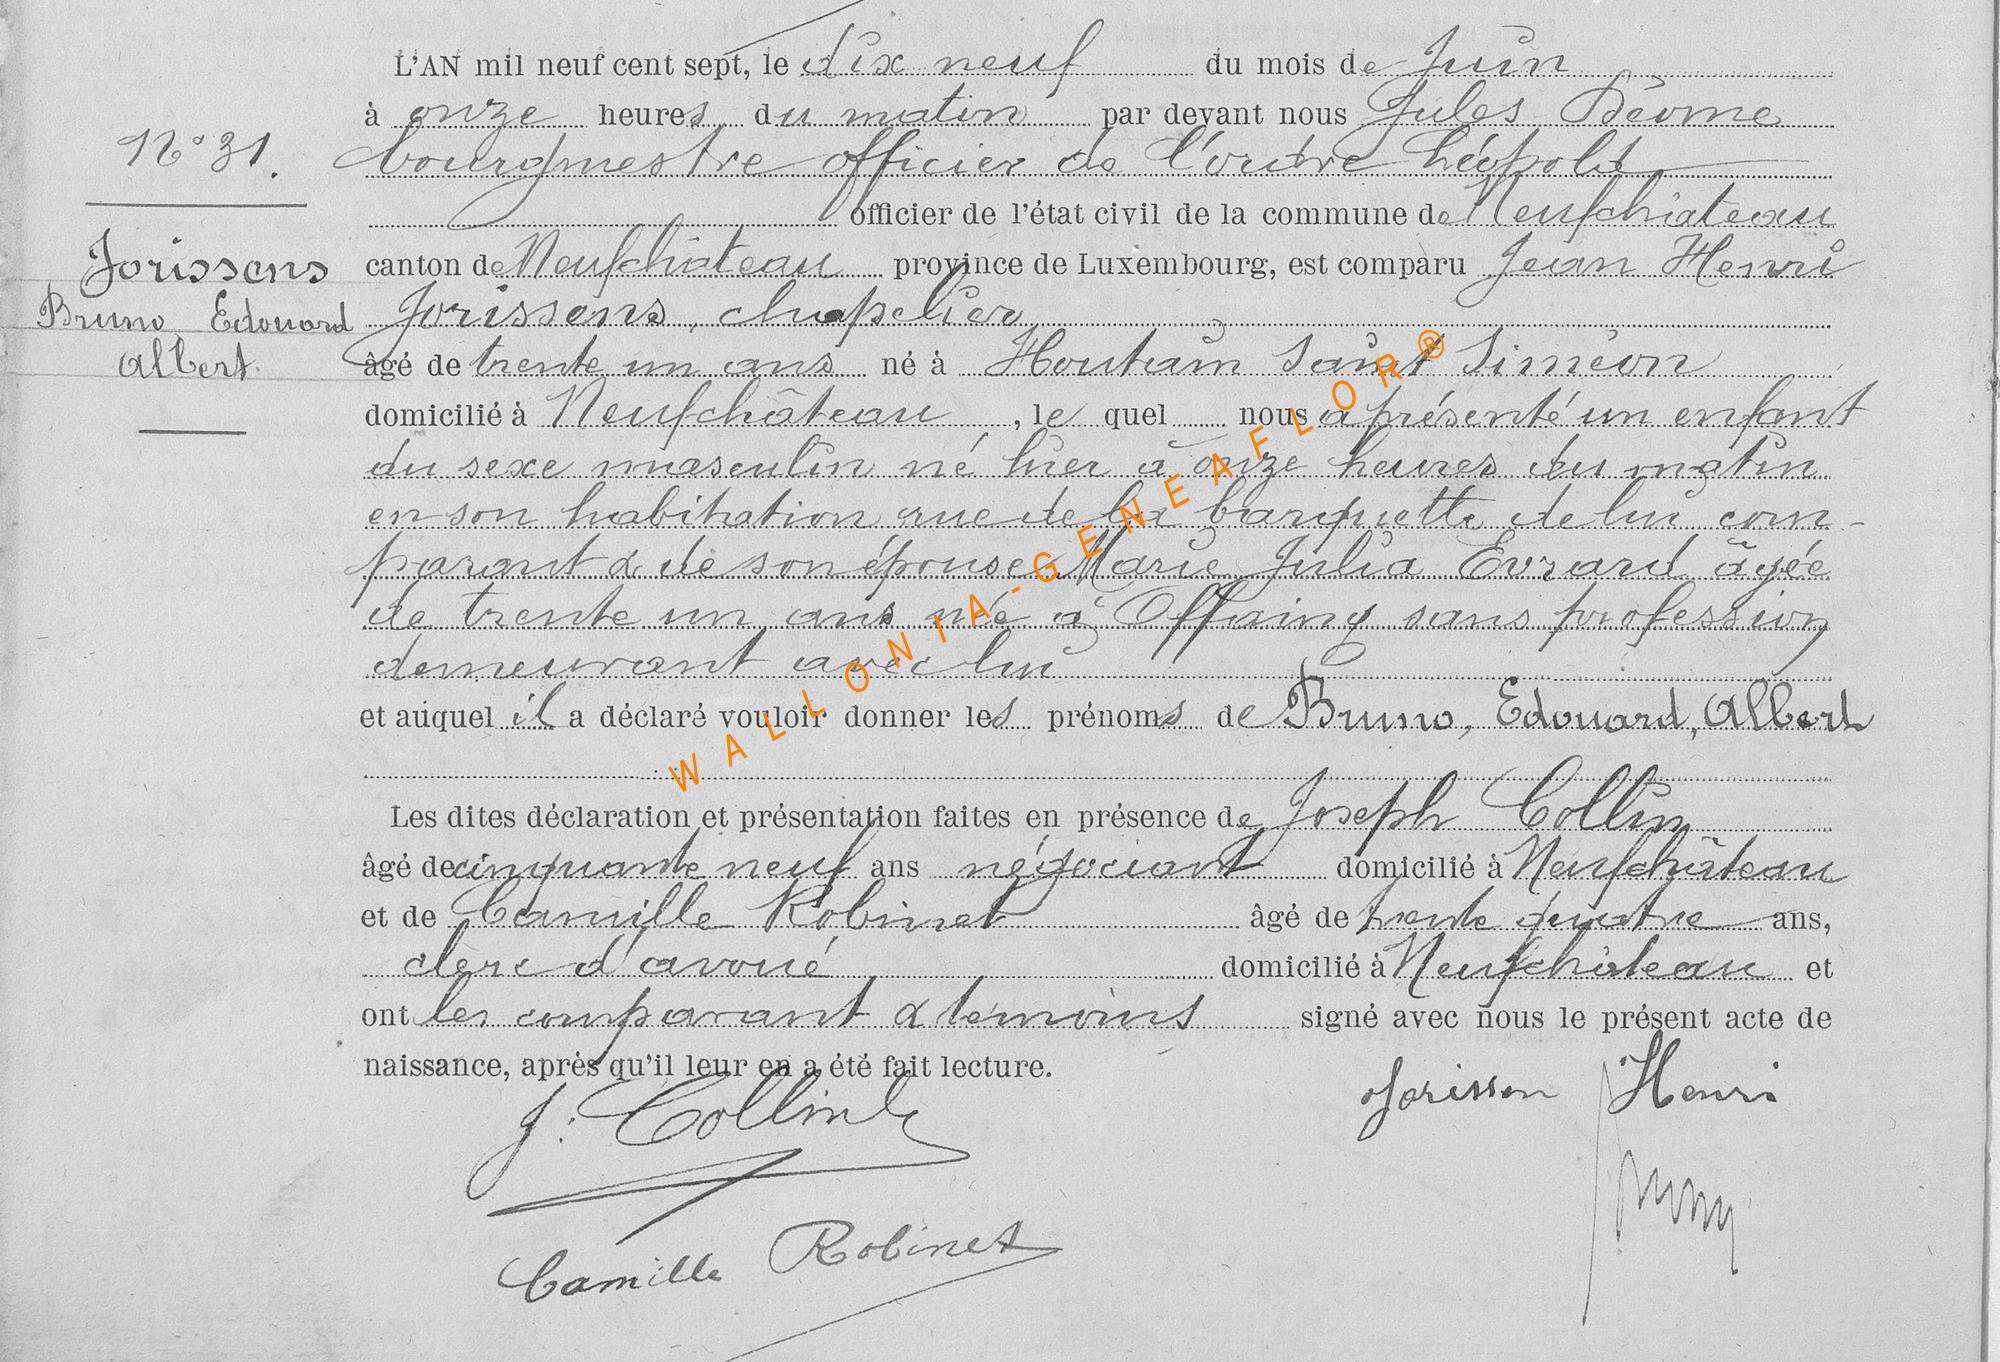 L'AN mil neuf cent sept, le dix neuf du mois de Juin
à onze heures du matin par devant nous Jules
N° 31. bourgmestre officier de l'ordre Léopold
officier de l'état civil de la commune de Neufchateau
Jorissens canton de Neufchâteau province de Luxembourg, est comparu Jean Henri
Bruno Edouard Jorissens, chapelier
Albert âgé de trente un ans né à Houtain Saint Siméon
domicilié à Neufchâteau, le quel nous a présenté un enfant
du sexe masculin né hier à onze heures du matin
en son habitation rue de la barquette de lui com-
parant & de son épouse Marie Julia Evrard âgée
de trente un ans née à Offaing sans profession
demeurant avec lui
et auquel il a déclaré vouloir donner les prénoms de Bruno, Edouard, Albert
Les dites déclaration et présentation faites en présence de Joseph Collin
âgé de cinquante neuf ans négociant domicilié à Neufchâteau
et de Camille Robinet âgé de trente quatre ans,
clerc d'avoué domicilié à Neufchâteau et
ont les comparant & temoins signé avec nous le présent acte de
naissance, après qu'il leur en a été fait lecture.
J. Collin Jorissen Henri
Camille Robinet
WALLONIA-GENEAFLOR®